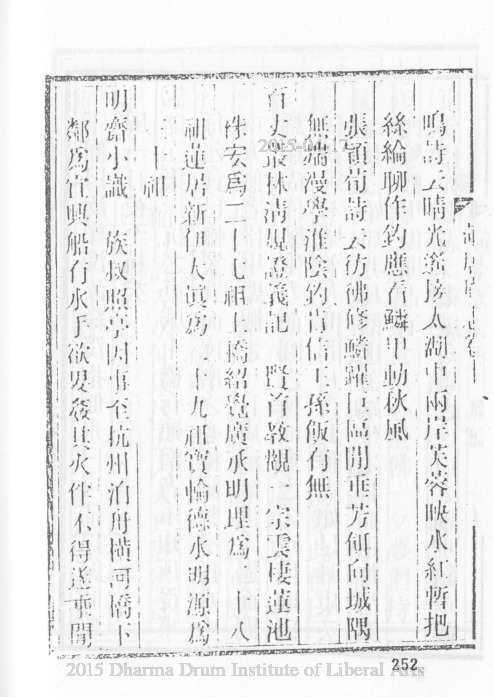 鳴詩云晴光遙接太湖中兩岸芙蓉映水紅暫把
絲綸聊作釣應看鱗甲動秋風
張穎荀詩云彷彿修鱗躍 區開垂芳傾向城隅
無端漫學淮陰釣肯信王孫飯有無
百丈叢林清規證義記 賢首教觀一宗雲棲蓮池
性安為二十七祖土橋紹覺廣承明理為二十八
祖蓮居新伊大真為二十九祖寶輪德水明源為
三十祖
明齋小識 族叔照亭因事至杭州泊舟橫河橋下
鄰為宜興船有水手欲 其火伴不得遂乘間
252
2015-04-17
2015 Dharma Drum Institute of Liberal Arts